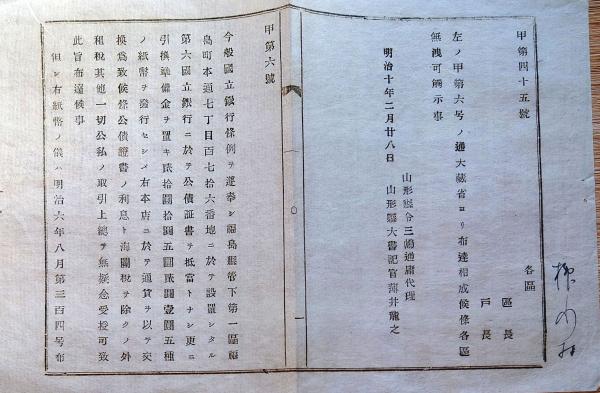 甲第四十五號
各區
區長
戸長
左ノ甲第六号ノ通大藏省ヨリ布達相成候條各區
無洩可觸示事
明治十年二月廿八日
山形縣令三嶋通庸代理
山形縣大書記官薄井龍之
甲第六號
今般國立銀行條例ヲ遵奉シ福島縣管下第一區福
島町本通七丁目百七拾六番地ニ於テ設置シタル
第六國立銀行ニ於テ公債証書ヲ抵當トナシ更ニ
引換準備金ヲ置キ貳拾圓拾圓五圓貳圓壹圓五種
ノ紙幣ヲ發行セシメ右本店ニ於テ通貨ヲ以テ交
換為致候條公債證書ノ利息ト海關税ヲ除クノ外
租税其他一切公私ノ取引上總テ無疑念受授可致
此旨布達候事
但シ右紙幣ノ儀ハ明治六年八月第三百四号布